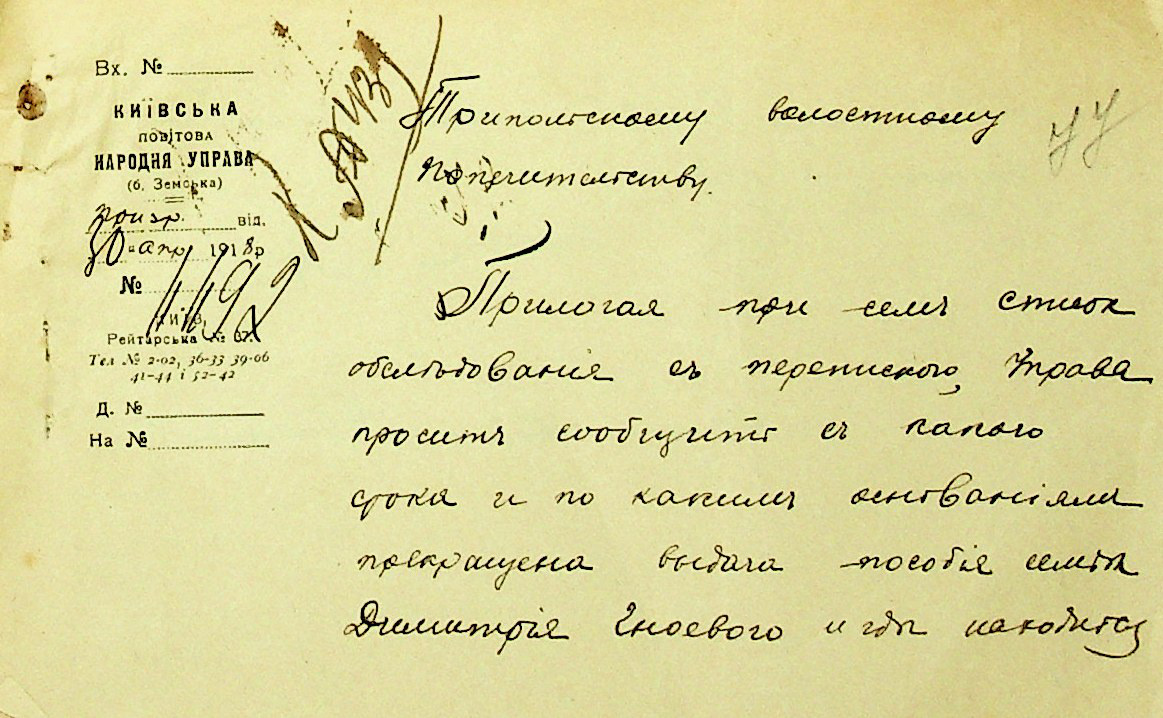 Вх. №
КИЇВСЬКА
ПОВІТОВА
НАРОДНЯ УПРАВА
(б. Земська)
призр. від.
30 апр 1918 р
№ 1192
КИЇВ,
Рейтарська № 37.
Тел № 2-02, 36-33 39-06
41-44 і 52-42
Д. №
На №
Трипольскому волостному
Попечительству.
Прилогая при семъ список
обслѣдованія съ перепискою, Управа
проситъ сообщить съ какого
срока и по какимъ основаніямъ
прекращена выдача пособія семьѣ
Димитрія Гноевого и гдѣ находится